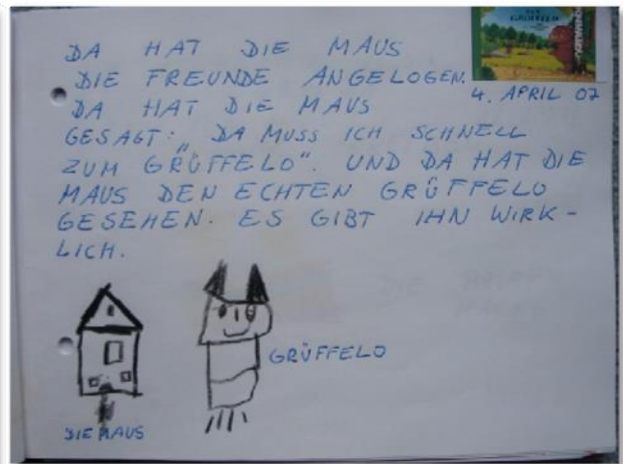 DA HAT DIE MAUS
DIE FREUNDE ANGELOGEN.
4. APRIL 07
DA HAT DIE MAUS
GESAGT: „DA MUSS ICH SCHNELL
ZUM GRÜFFELO". UND DA HAT DIE
MAUS DEN ECHTEN GRÜFFELO
GESEHEN. ES GIBT IHN WIRK-
LICH.
GRÜFFELO
DIE MAUS